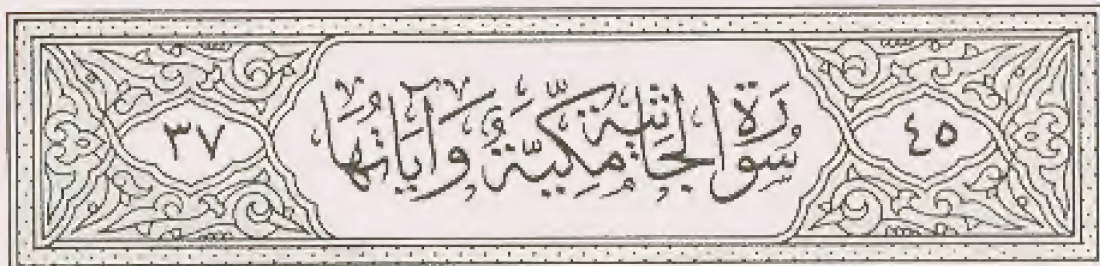 ٤٥
سُورَةُ الجَاثِيَةِ مَكِّيَّةٌ وَآيَاتُهَا
٣٧